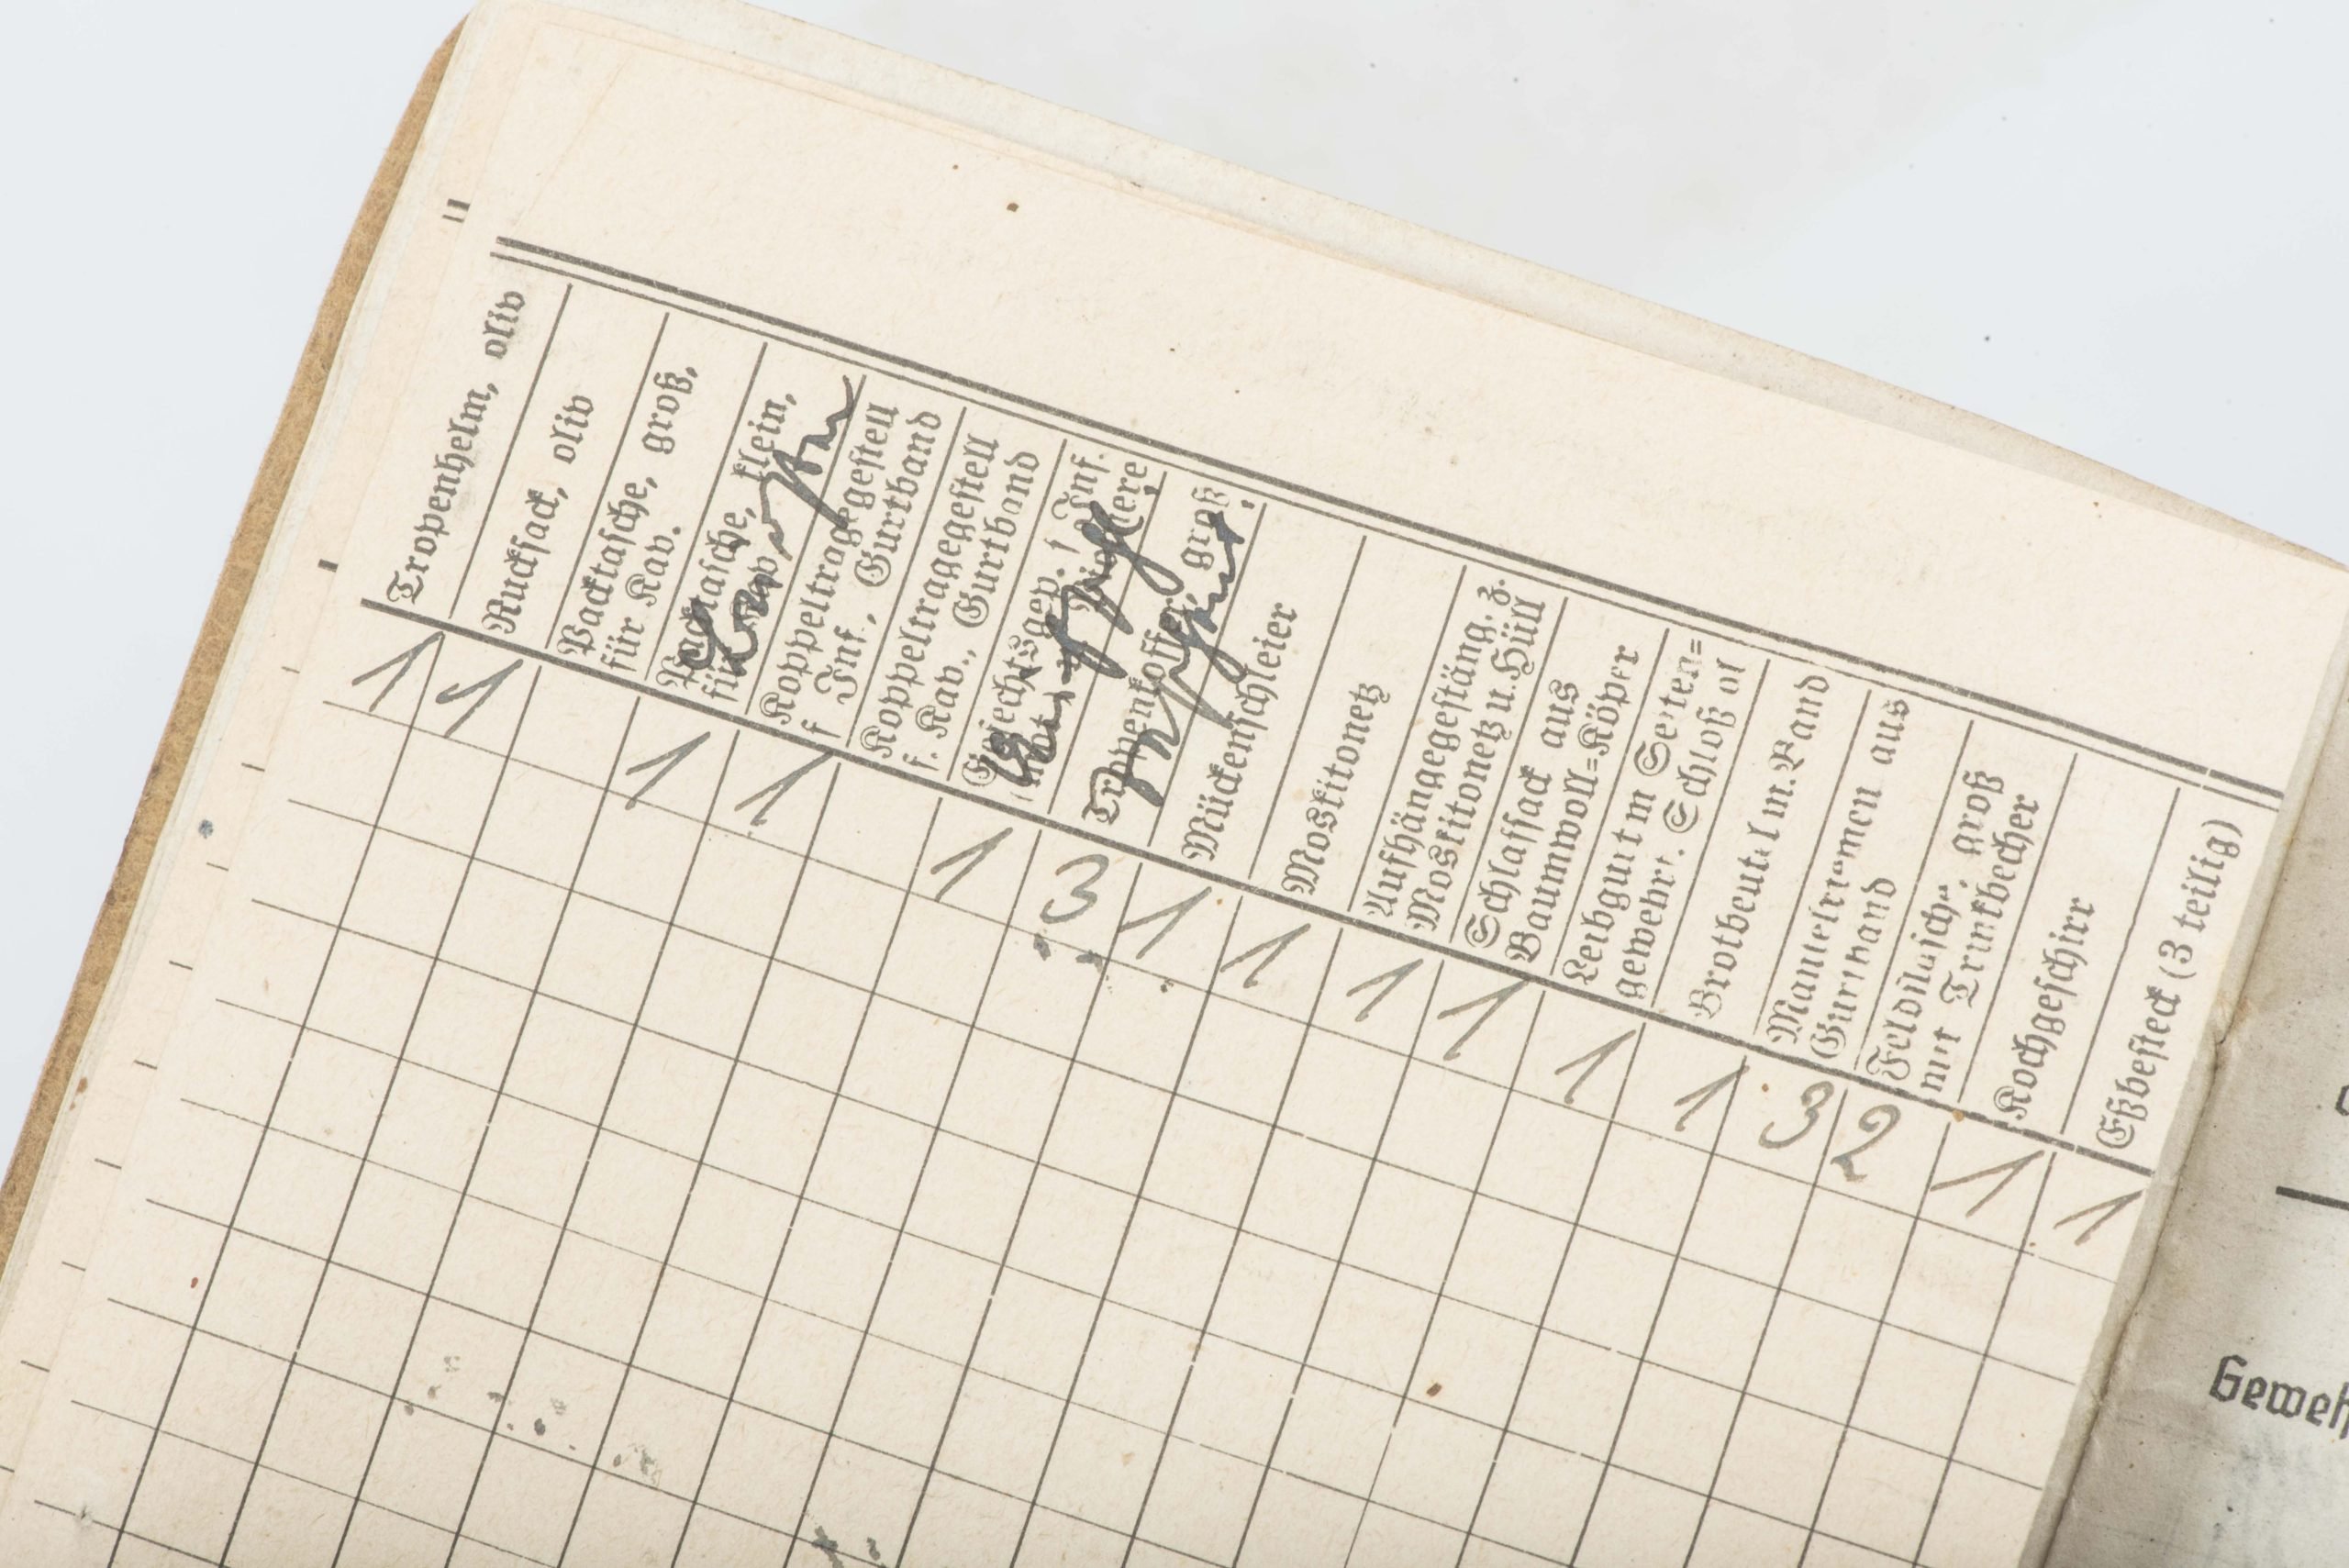 Tropenhelm, oliv
Rucksack, oliv
Packtasche, groß,
für Kav.
Packtasche, klein,
für
Koppeltragegestell
f. Inf., Gurtband
Koppeltragegestell
f. Kav., Gurtband
Gefechtsgep. f. Inf.
Tropenkoffer, groß,
Mückenschleier
Moskitonetz
Aufhängegestäng. z.
Moskitonetz u. Hüll
Schlafsack aus
Baumwoll=Köper
Leibgurt m Seiten=
gewehrt. Schloß ol
Brotbeutel m. Band
Mantelriemen aus
Gurtband
Feldflasche, groß
mit Trinkbecher
Kochgeschirr
Eßbesteck (3 teilig)
1 1 1 1 1 3 1 1 1 1 1 1 3 2 1 1
Geweh